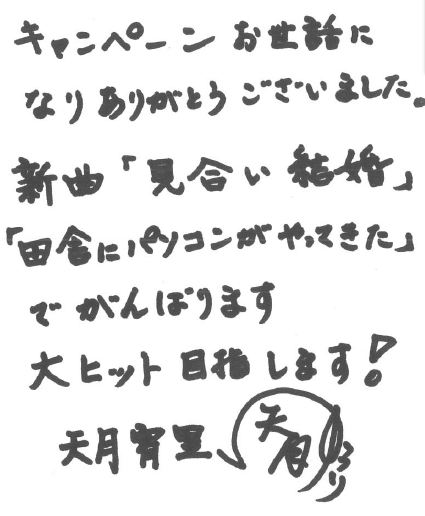 キャンペーン お世話に
なり ありがとう ございました。
新曲「見合い 結婚」
「田舎にパソコンが やってきた」
で がんばります
大ヒット 目指します!
天月宵里 天月